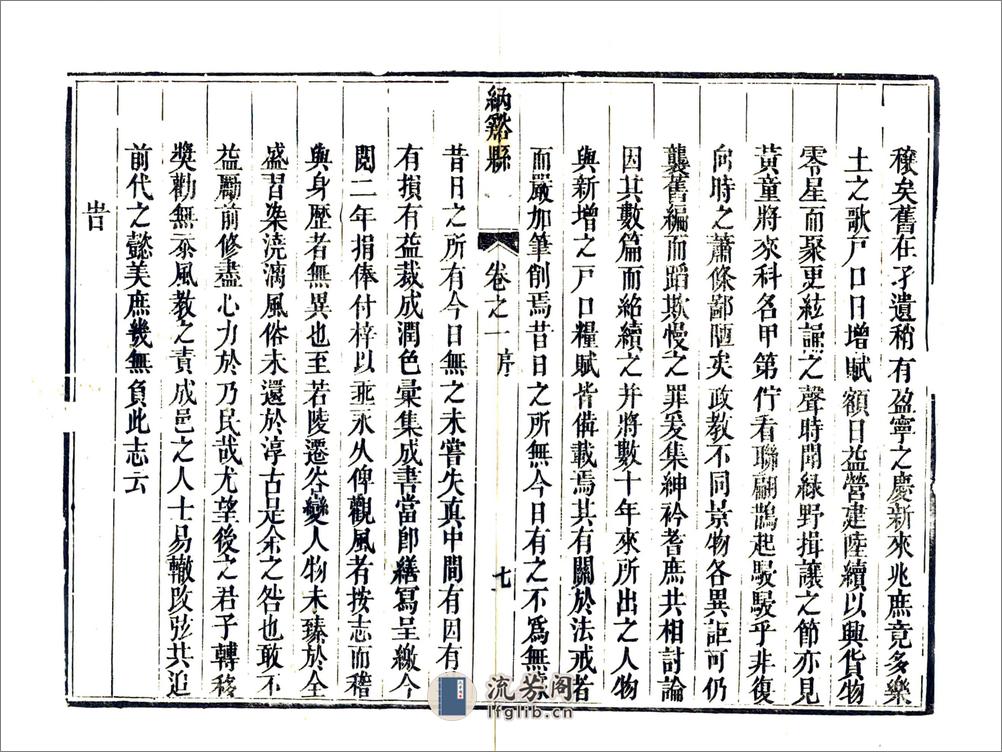 穣矣舊在孑遺稍有盈寧之慶新來兆庶竟多樂
土之歌戸口日增賦額日益營建陸續以興貨物
零星而聚更絃誦之聲時聞綠野揖讓之節亦見
黃童將來科名甲第佇看聯翩鵲起駸駸乎非復
向時之蕭條鄙陋矣政教不同景物各異詎可仍
襲舊編而蹈欺慢之罪爰集紳衿耆庶共相討論
因其數篇而絶續之并將數十年來所出之人物
與新增之戸口糧賦皆備載焉其有關於法戒者
而嚴加筆削焉昔日之所無今日有之不爲無
納谿縣
卷之一 序
七
昔日之所有今日無之未嘗失真中間有因有
有損有益裁成潤色彙集成書當即繕寫呈繳今
閱二年捐俸付梓以垂永久俾觀風者按志而稽
與身歷者無異也至若陵遷谷變人物未臻於全
盛習染澆漓風俗未還於淳古是余之咎也敢不
益勵前修盡心力於乃民哉尤望後之君子轉移
奬勸無忝風教之責成邑之人士易轍改弦共追
前代之懿美庶幾無負此志云
旹
流芳阁
lfglib.cn